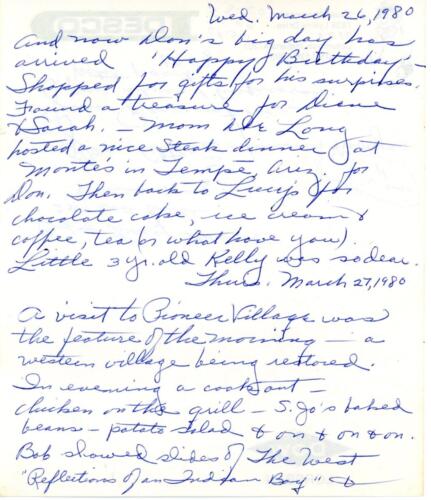 Wed. March 26, 1980
And now Don's big day has
arrived 'Happy Birthday' -
Shopped for gifts for his surprises.
Found a treasure for Diane
& Sarah. - Mom De Long
hosted a nice Steak dinner at
Monte's in Tempe, Ariz. for
Don. Then back to Lucy's for
chocolate cake, ice cream &
coffee, tea (or what have you).
Little 3 yr. old Kelly was so dear.
Thurs. March 27, 1980
A visit to Pioneer Village was
the feature of the morning - a
western village being restored.
In evening a cookout -
chicken on the grill - S. Jo's baked
beans - potato salad & on & on & on.
Bob showed slides of The West
"Reflections of an Indian Boy" &